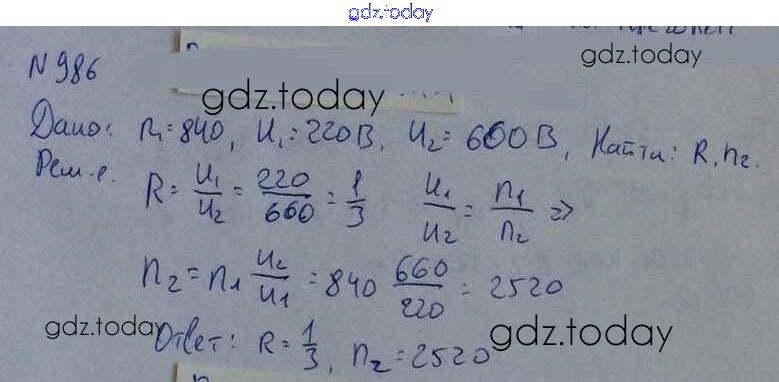 gdz.today
N 986
gdz.today
gdz.today
Дано: n₁=840, U₁=220В, U₂=660В, Найти: R, n₂.
Реш-е.
R = U₁/U₂ = 220/660 = 1/3 U₁/U₂ = n₁/n₂ ⇒
n₂ = n₁ U₂/U₁ = 840 660/220 = 2520
gdz.today
Ответ: R = 1/3, n₂ = 2520
gdz.today